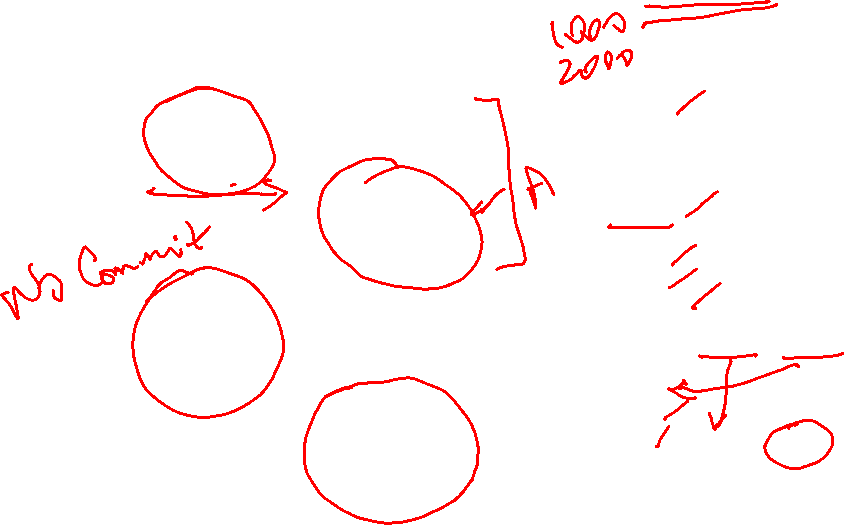 1000
2000
A
No Commit